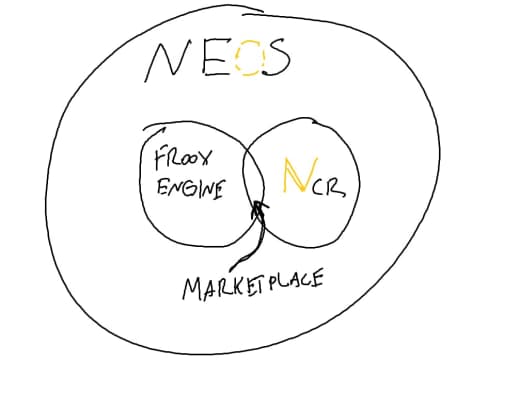 NEOS
FROOX
ENGINE
NCR
MARKETPLACE